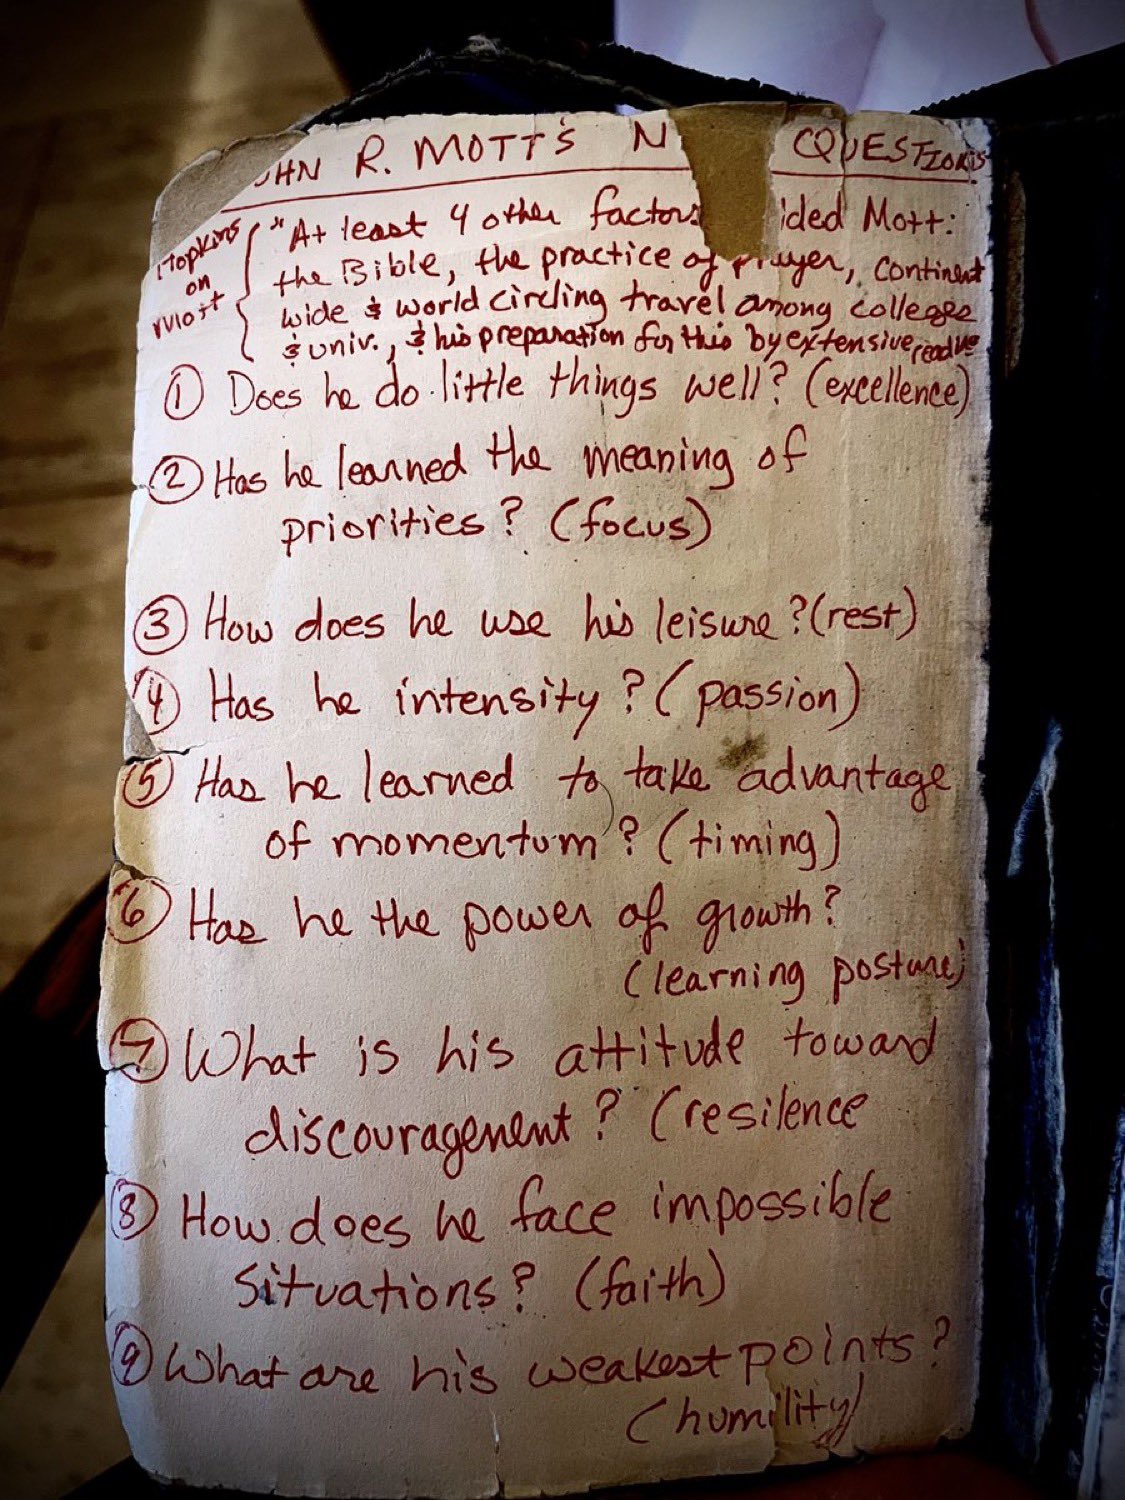 OHN R. MOTT'S N QUESTIONS
Hopkins
on
Mott
"At least 4 other factors ided Mott:
the Bible, the practice of prayer, continent
wide & world circling travel among colleges
& univ., & his preparation for this by extensive reading
① Does he do little things well? (excellence)
② Has he learned the meaning of
priorities? (focus)
③ How does he use his leisure? (rest)
④ Has he intensity? (passion)
⑤ Has he learned to take advantage
of momentum? (timing)
⑥ Has he the power of growth?
(learning posture)
⑦ What is his attitude toward
discouragement? (resilence
⑧ How does he face impossible
situations? (faith)
⑨ What are his weakest points?
(humility)